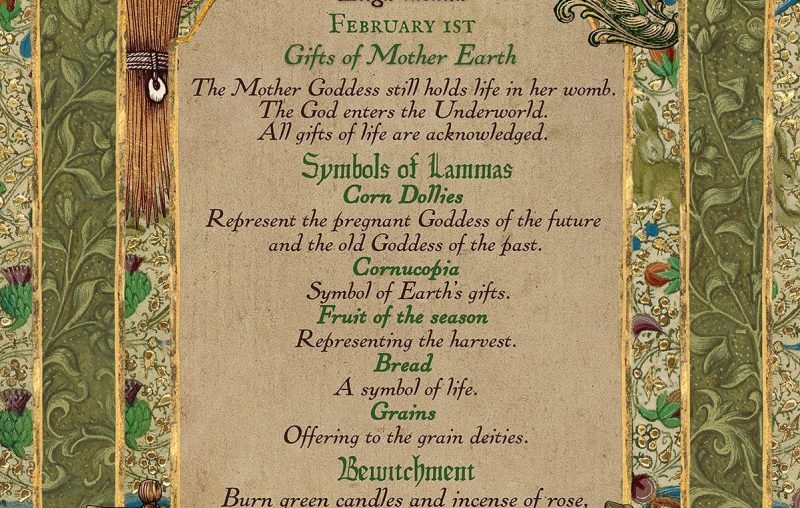 February 1st
Gifts of Mother Earth
The Mother Goddess still holds life in her womb.
The God enters the Underworld.
All gifts of life are acknowledged.
Symbols of Lammas
Corn Dollies
Represent the pregnant Goddess of the future
and the old Goddess of the past.
Cornucopia
Symbol of Earth's gifts.
Fruit of the season
Representing the harvest.
Bread
A symbol of life.
Grains
Offering to the grain deities.
Bewitchment
Burn green candles and incense of rose,